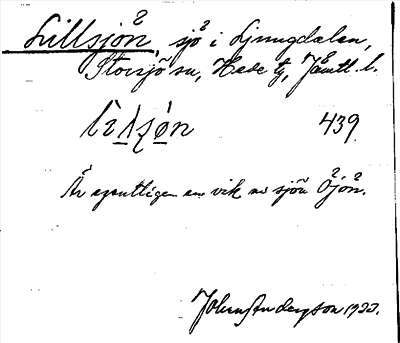 Lillsjön, sjö i Ljungdalen,
Storsjö sn, Hede tg, Jämtl. l.
439.
Är egentligen en vik av sjön Öjön.
John Anderzson 1933.